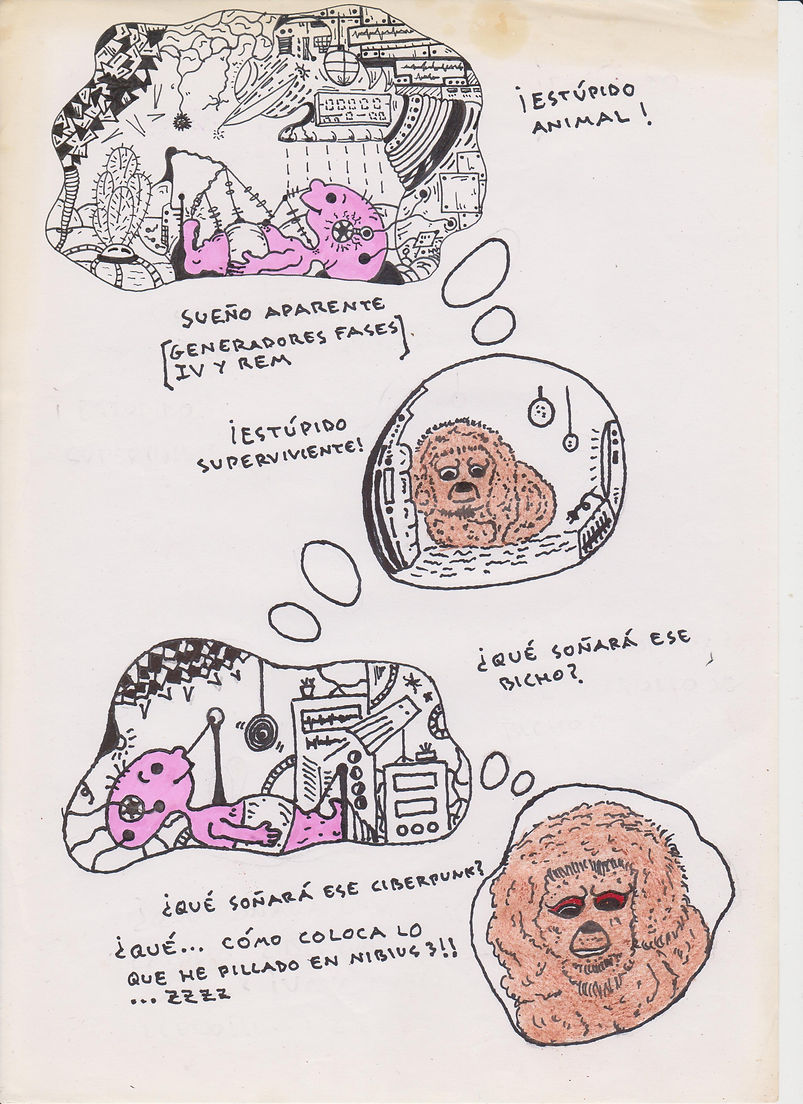 ¡ESTÚPIDO
ANIMAL!
SUEÑO APARENTE
[GENERADORES FASES
IV Y REM]
¡ESTÚPIDO
SUPERVIVIENTE!
¿QUÉ SOÑARÁ ESE
BICHO?
¿QUÉ SOÑARÁ ESE CIBERPUNK?
¿QUÉ... CÓMO COLOCA LO
QUE HE PILLADO EN NIBIUS 3!!
... ZZZZ